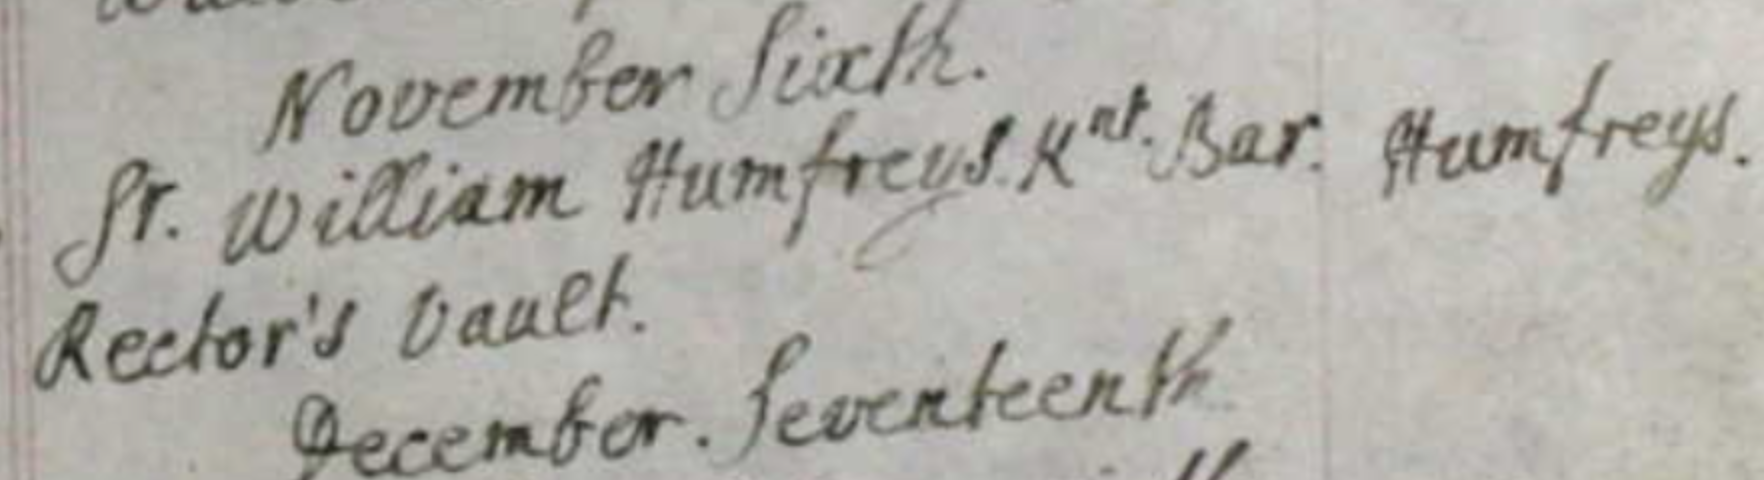 November Sixth.
Sr. William Humfreys. Knt. Bar. Humfreys.
Rector's Vault.
December. Seventeenth